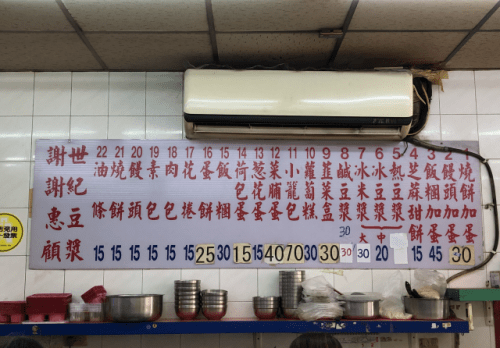 1 燒餅加蛋 30
2 饅頭加蛋
3 飯糰加蛋 45
4 芝麻甜餅 15
5 熱豆漿
6 冰豆漿 中 20
7 冰米漿 大 30
8 鹹豆漿 30 30
9 韮菜盒 30
10 蘿蔔糕 30
11 小籠包 70
12 菜脯蛋 40
13 蔥花蛋 15
14 荷包蛋 15
15 飯糰 30
16 蛋餅 25
17 花捲 15
18 肉包 15
19 素包 15
20 饅頭 15
21 燒餅 15
22 油條 15
世紀豆漿
謝謝惠顧